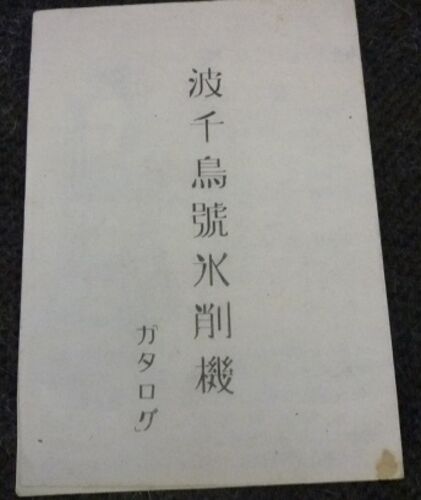 波千鳥號氷削機
カタログ